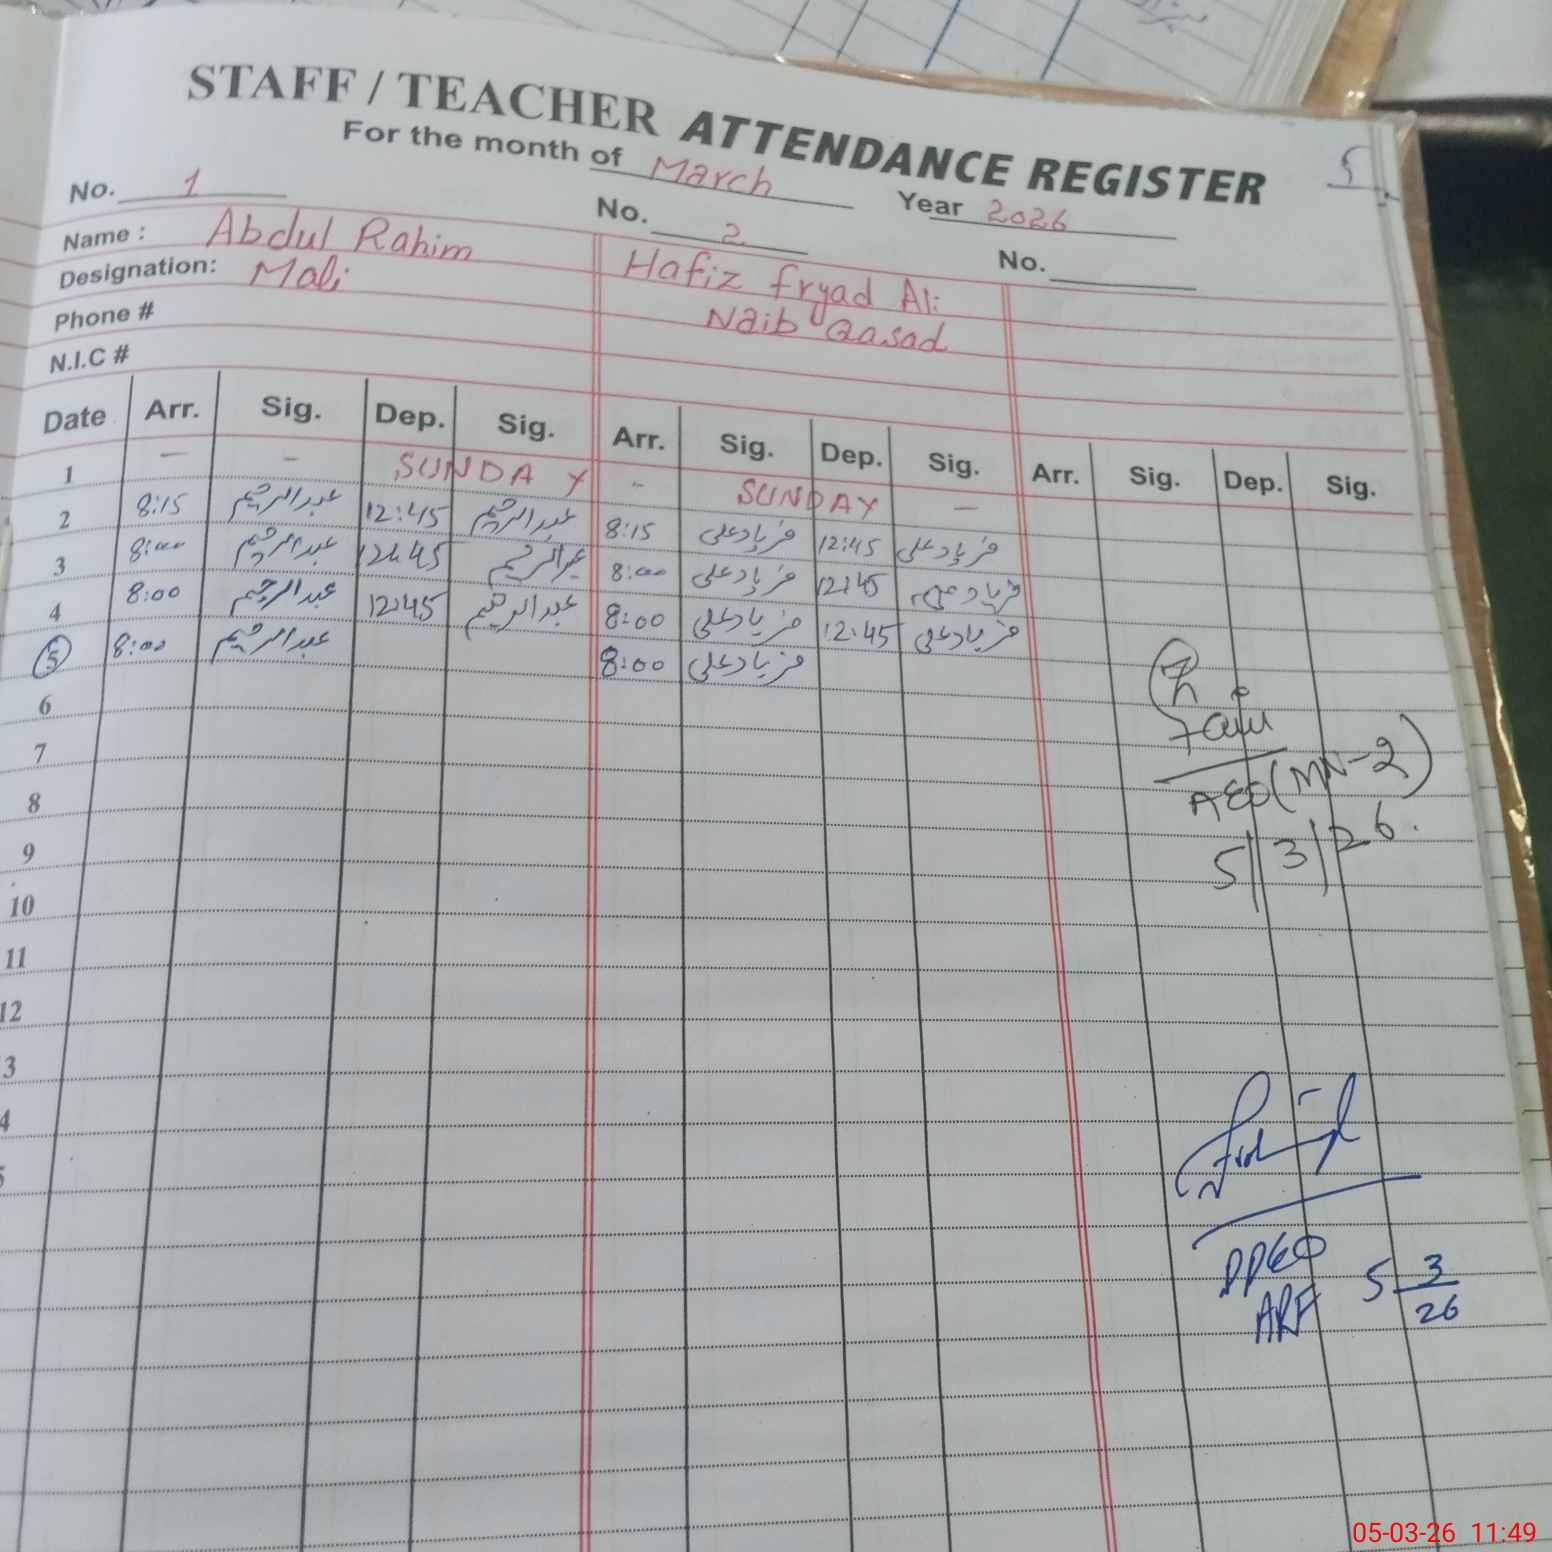 STAFF / TEACHER ATTENDANCE REGISTER
5
For the month of March Year 2026
No. 1 No. 2 No.
Name : Abdul Rahim Hafiz Fryad Ali
Designation: Mali Naib Qasad
Phone #
N.I.C #
Date Arr. Sig. Dep. Sig. Arr. Sig. Dep. Sig. Arr. Sig. Dep. Sig.
1 — — SUNDAY - SUNDAY —
2 8:15 عبدالرحیم 12:45 عبدالرحیم 8:15 فریاد علی 12:45 فریاد علی
3 8:00 عبدالرحیم 12:45 عبدالرحیم 8:00 فریاد علی 12:45 فریاد علی
4 8:00 عبدالرحیم 12:45 عبدالرحیم 8:00 فریاد علی 12:45 فریاد علی
5 8:00 عبدالرحیم 8:00 فریاد علی
6
7
8
9
10
11
12
3
4
5
AEO (MN-2)
5/3/26.
DDEO
ARF
5 3/26
05-03-26 11:49